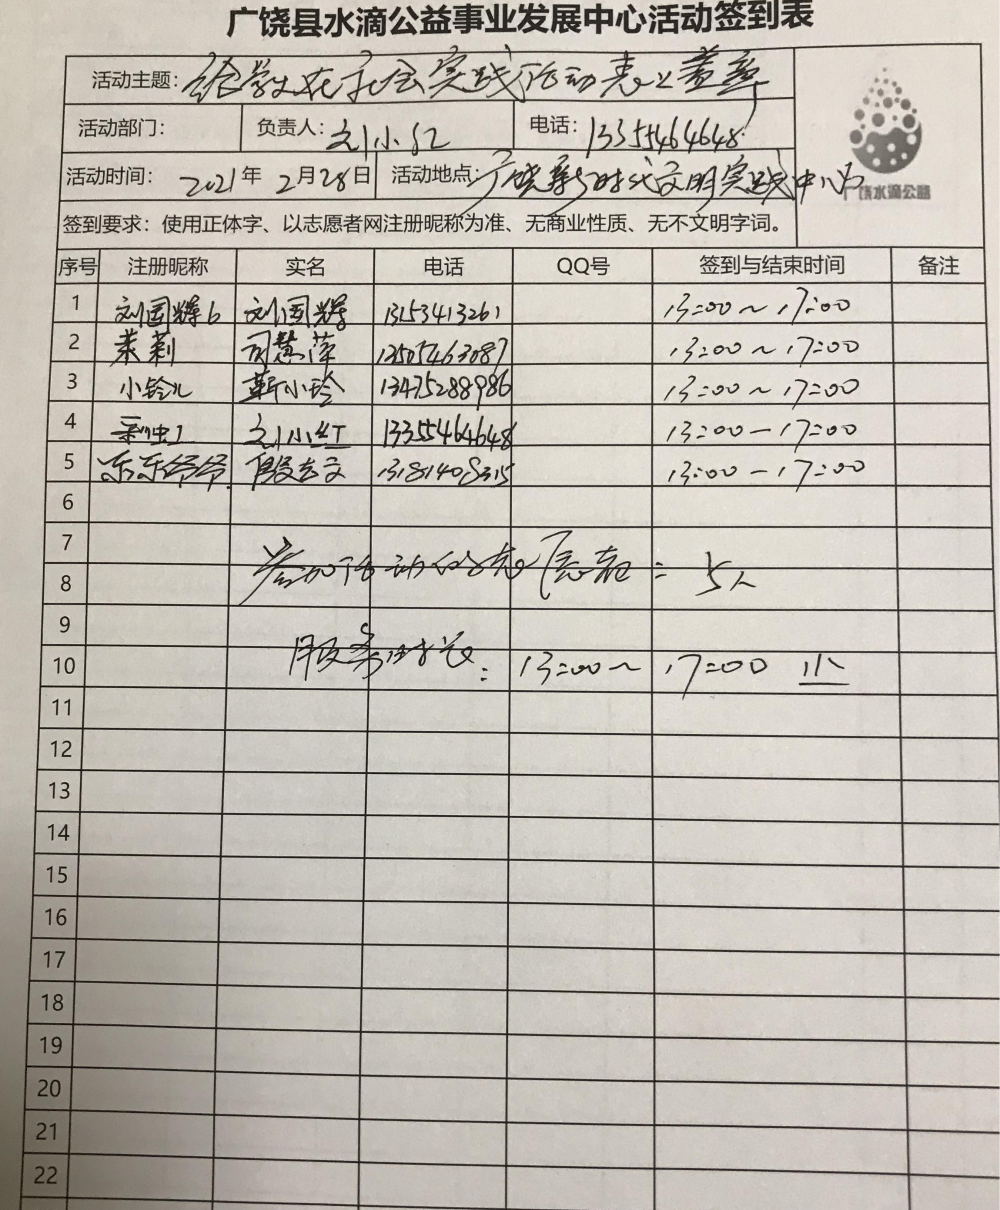 广饶县水滴公益事业发展中心活动签到表
活动主题：给学生在社会实践活动表上盖章
活动部门： 负责人：刘小红 电话：13355464648
活动时间： 2021年 2月28日 活动地点：广饶新时代文明实践中心
广饶水滴公益
签到要求：使用正体字、以志愿者网注册昵称为准、无商业性质、无不文明字词。
序号 注册昵称 实名 电话 QQ号 签到与结束时间 备注
1 刘国辉6 刘国辉 13153413261 13:00～17:00
2 茉莉 司慧萍 13505463087 13:00～17:00
3 小铃儿 靳小玲 13475288986 13:00～17:00
4 刘小红 13355464648 13:00－17:00
5 东东爷爷 殷志文 13181408315 13:00－17:00
6
7
参加活动的志愿者：5人
8
9
服务时长：13:00～17:00
10
11
12
13
14
15
16
17
18
19
20
21
22